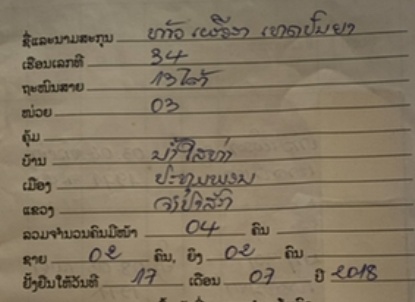 ຊື່ແລະນາມສະກຸນ ທ້າວ
ເຮືອນເລກທີ 34
ຖະໜົນສາຍ 13 ໃຕ້
ໜ່ວຍ 03
ຄຸ້ມ
ບ້ານ
ເມືອງ ປະທຸມພອນ
ແຂວງ ຈຳປາສັກ
ລວມຈຳນວນຄົນມີໜ້າ 04 ຄົນ
ຊາຍ 02 ຄົນ, ຍິງ 02 ຄົນ
ຢັ້ງຢືນໃຫ້ວັນທີ 17 ເດືອນ 07 ປີ 2018